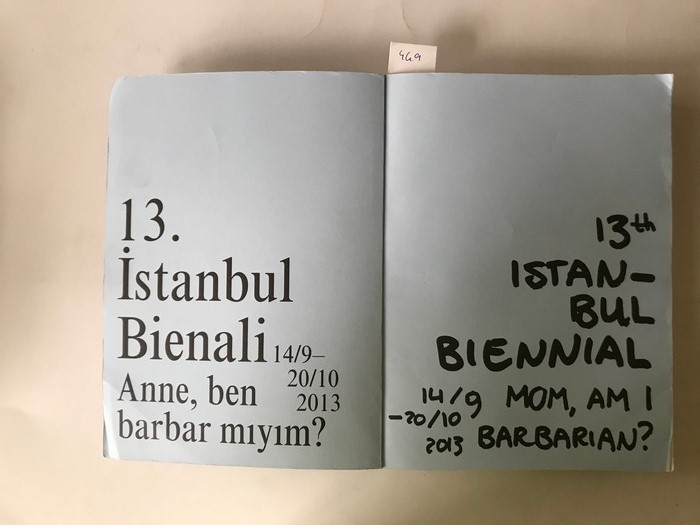 449
13.
İstanbul
Bienali 14/9–
20/10
2013
Anne, ben
barbar mıyım?
13th
ISTAN–
BUL
BIENNIAL
14/9
–20/10
2013
MOM, AM I
BARBARIAN?